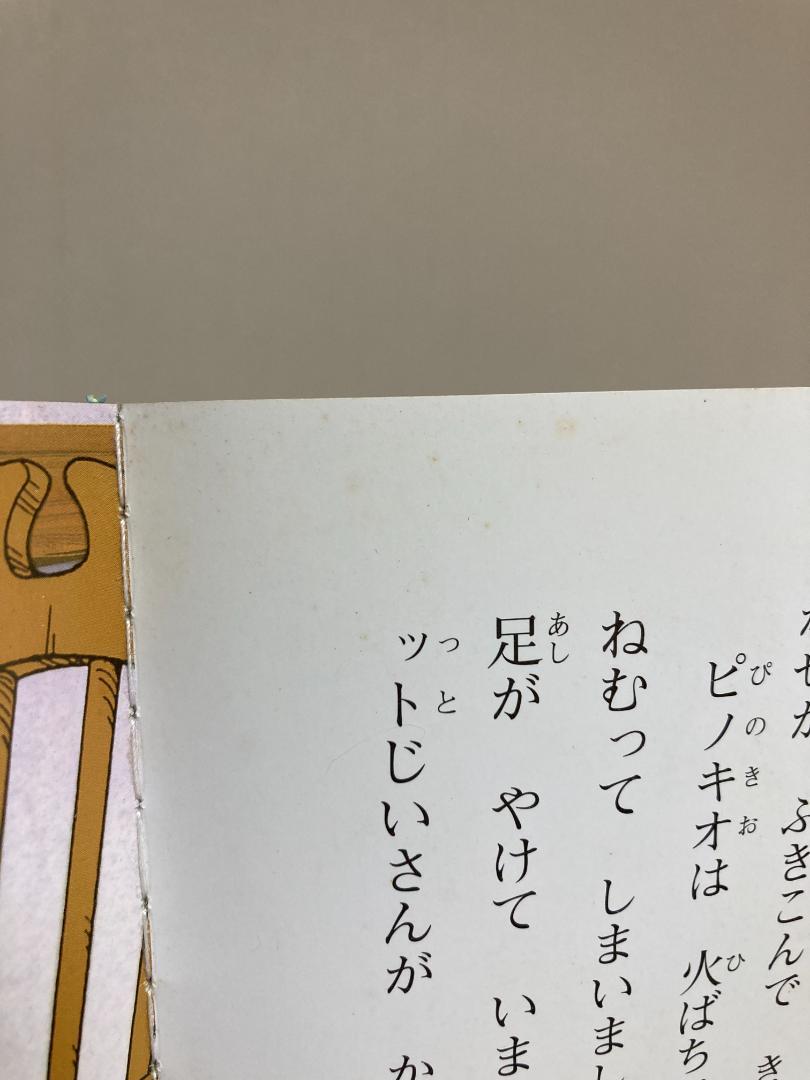 ふきこんで
ピノキオは 火ばち
ねむって しまいまし
足が やけて いま
ットじいさんが か
ぴのきお
ひ
あし
っと